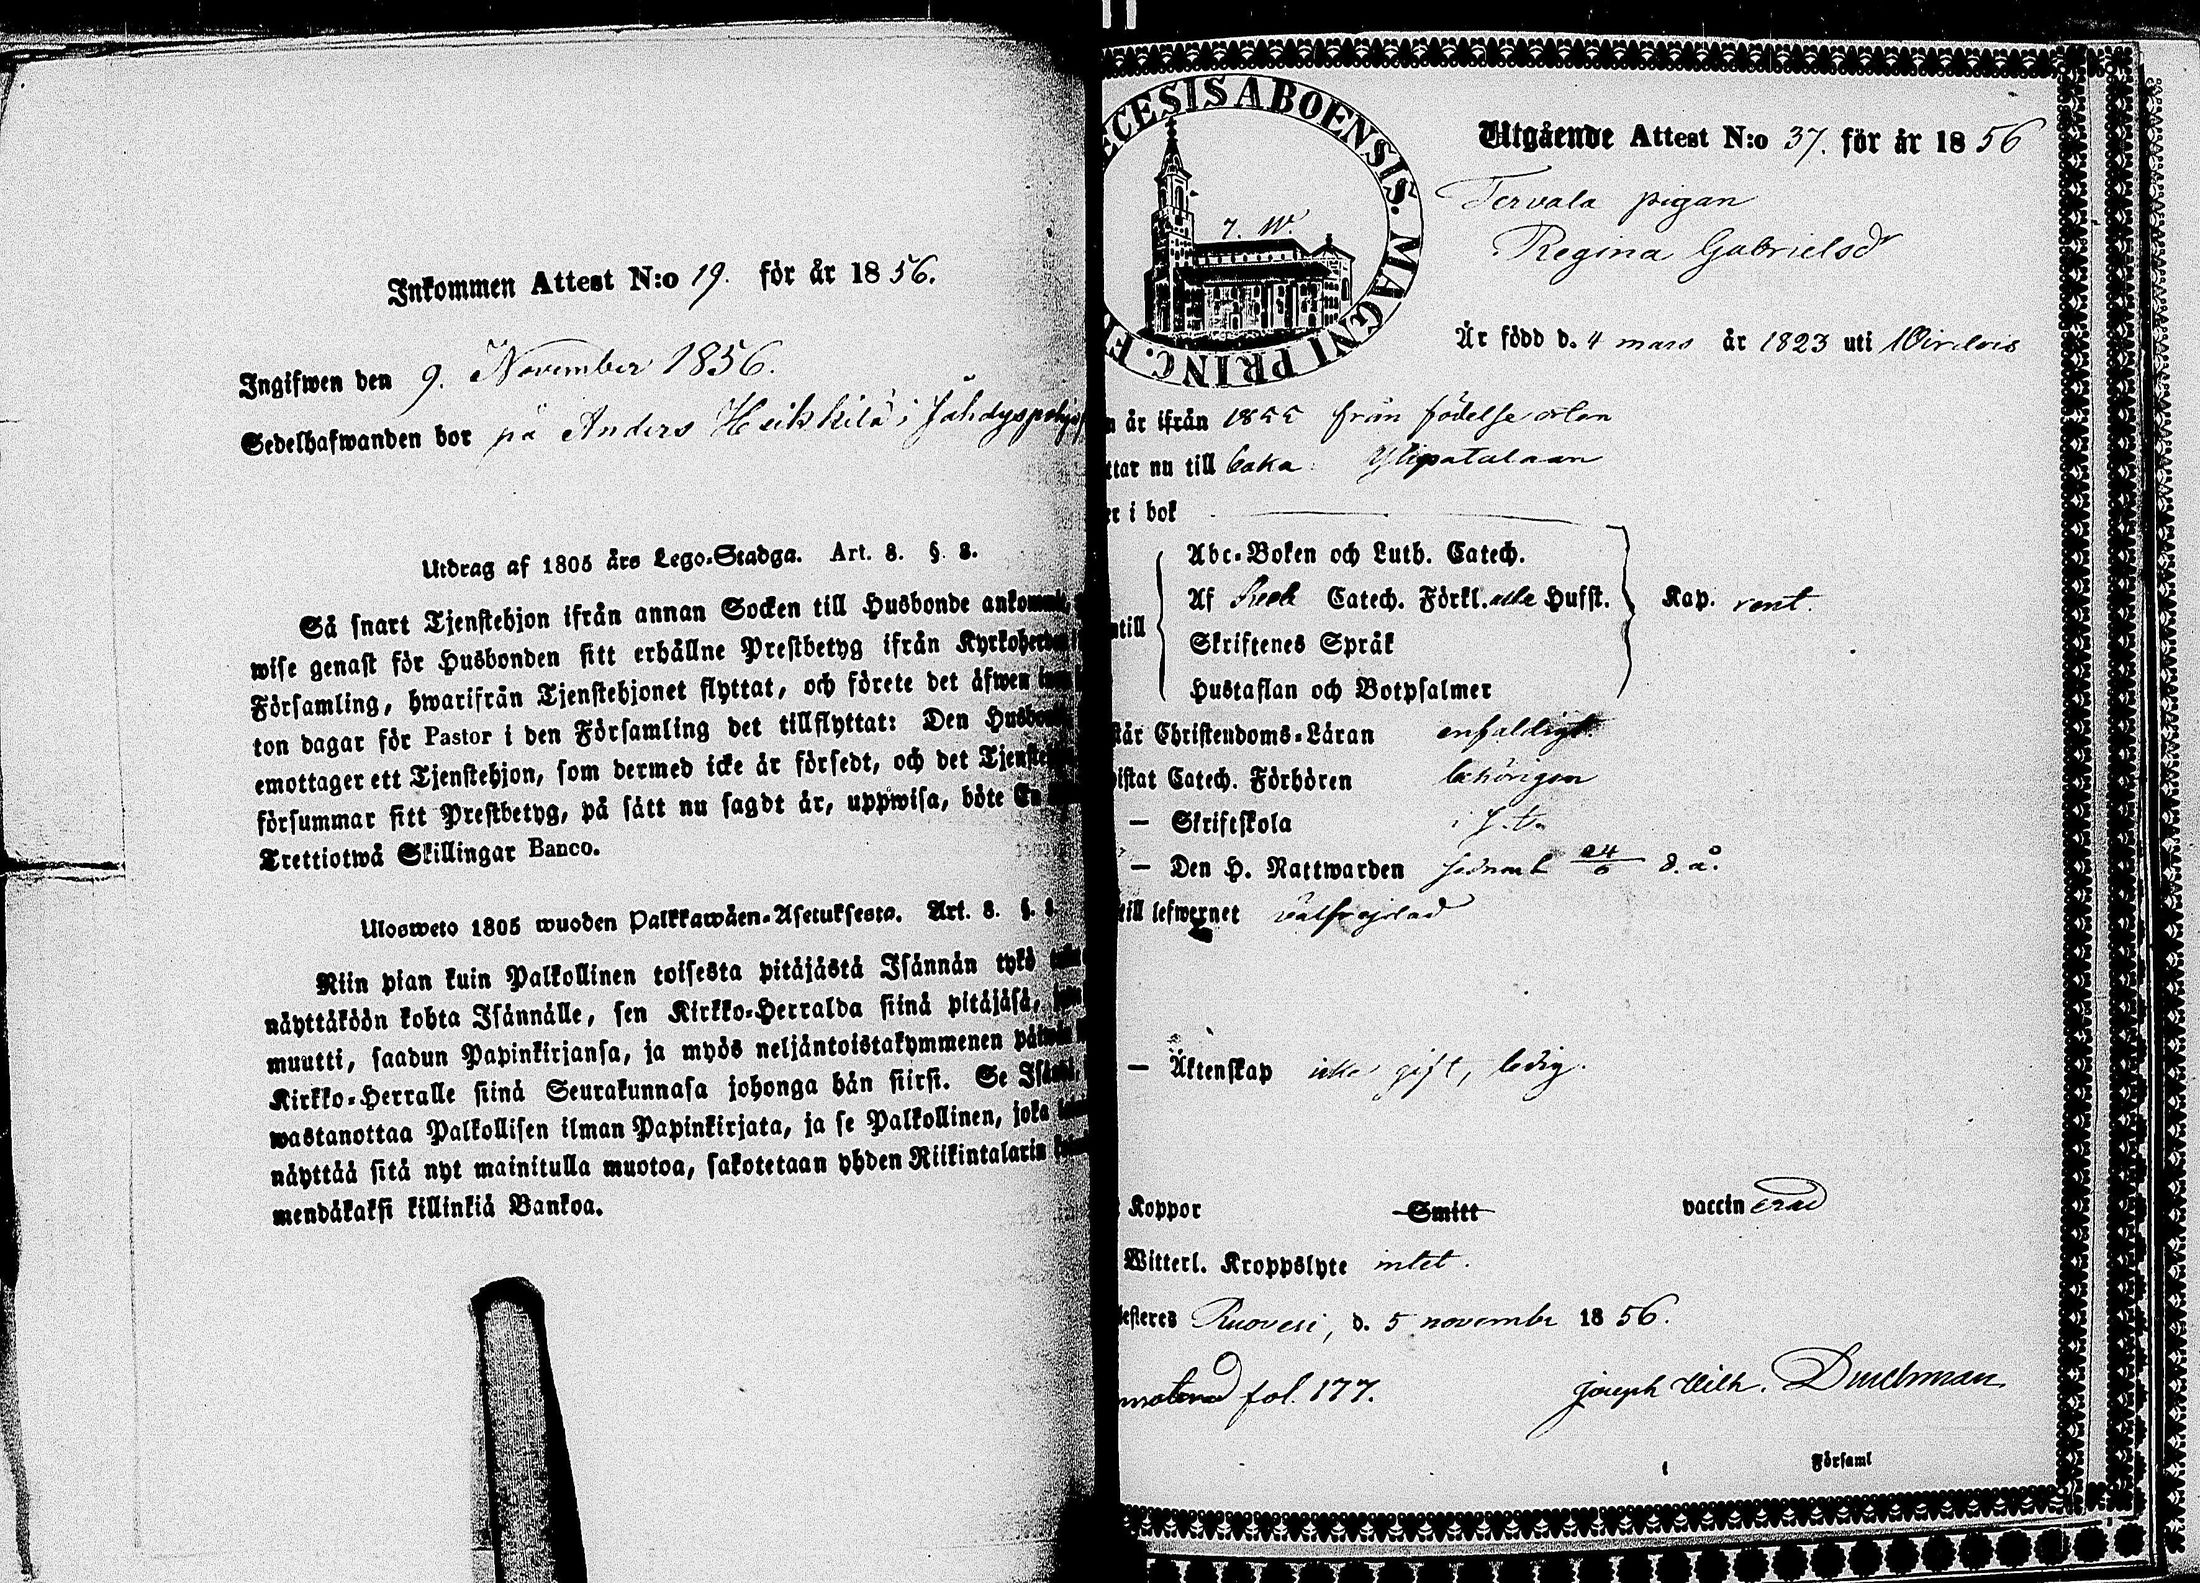 Inkommen Attest N:o 19. för år 1856.
Ingifwen den 9. November 1856.
Sedelhafwanden bor på Anders Heikkilä i Jähdyspohja
Utdrag af 1805 års Lego-Stadga. Art. 8. §. 8.
Så snart Tjenstehjon ifrån annan Socken till Husbonde
wise genast för Husbonden sitt erhållne Prestbetyg ifrån
Församling, hwarifrån Tjenstehjonet flyttat, och förete det äfwen
ton dagar för Pastor i den Församling det tillflyttat: Den
emottager ett Tjenstehjon, som dermed icke är försedt, och det
försummar sitt Prestbetyg, på sätt nu sagdt är, uppwisa, böte En
Trettiotwå Skillingar Banco.
Ulosweto 1805 wuoden Palkkawäen-Asetuksesta. Art. 8. §. 8.
Niin pian kuin Palkollinen toisesta pitäjästä Isännän tykö
näyttäköön kohta Isännälle, sen Kirkko-Herralda siinä pitäjäsä,
muutti, saadun Papinkirjansa, ja myös neljäntoistakymmenen
Kirkko-Herralle siinä Seurakunnasa johonga hän siirsi. Se
wastanottaa Palkollisen ilman Papinkirjata, ja se Palkollinen, joka
näyttää sitä nyt mainitulla muotoa, sakotetaan yhden Riikintalarin
mendäkaksi killinkiä Bankoa.
ECESIS ABOENSIS. MAGNI PRINC. F
7. W.
Utgående Attest N:o 37. för år 1856
Tervala pigan
Regina Gabrielsdr
Är född d. 4 mars år 1823 uti Wirdois
n är ifrån 1855 från födelse orten
ttar nu till baka Ylipatalaan
er i bok
ntill
Abc-Boken och Luth. Catech.
Af Catech. Förkl. Hufst. Kap. rent.
Skriftenes Språk
Hustaflan och Botpsalmer
står Christendoms-Läran enfaldigt.
istat Catech. Förhören behörigen
— Skriftskola
— Den H. Nattwarden sednast 24/6 d. å.
till lefwernet välfrejdad
— Äktenskap icke gift, ledig.
Koppor Smitt vaccinerad
Witterl. Kroppslyte intet.
esteres Ruovesi, d. 5 novembr 1856.
noterad fol. 177. Joseph Wilh. Durchman
Församl